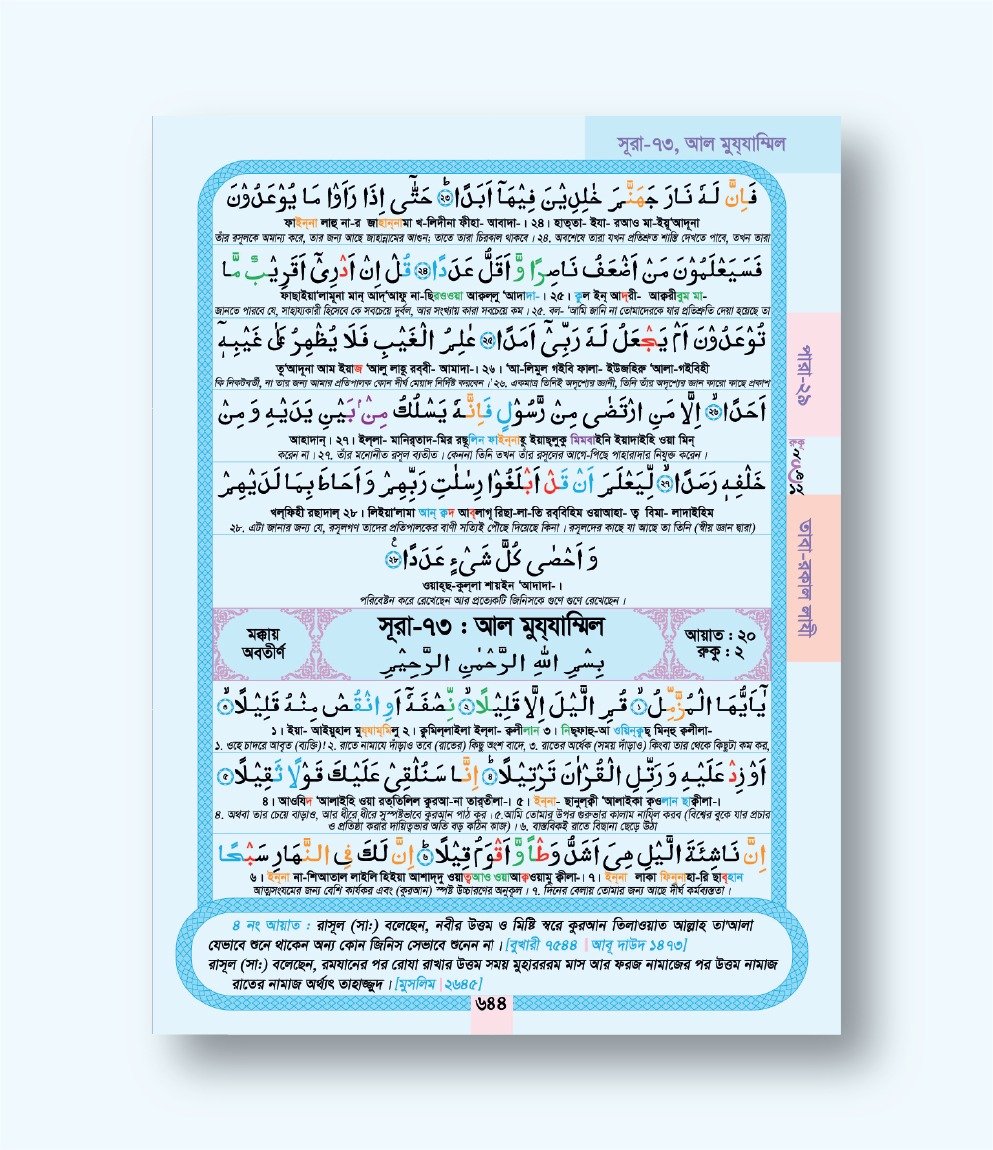 সূরা-৭৩, আল মুয্‌যাম্মিল
فَاِنَّ لَهٗ نَارَ جَهَنَّمَ خٰلِدِیْنَ فِیْهَاۤ اَبَدًا ؕ۲۳ حَتّٰۤی اِذَا رَاَوْا مَا یُوْعَدُوْنَ
ফাইন্না লাহূ না-র জাহান্নামা খ-লিদীনা ফীহা- আবাদা-। ২৪। হাত্তা- ইযা- রআও মা-ইয়ূ'আদূনা
তাঁর রসূলকে অমান্য করে, তার জন্য আছে জাহান্নামের আগুন; তাতে তারা চিরকাল থাকবে। ২৪. অবশেষে তারা যখন প্রতিশ্রুত শাস্তি দেখতে পাবে, তখন তারা
فَسَیَعْلَمُوْنَ مَنْ اَضْعَفُ نَاصِرًا وَّاَقَلُّ عَدَدًا ۲۴ قُلْ اِنْ اَدْرِیْۤ اَقَرِیْبٌ مَّا
ফাছাইয়া'লামূনা মান্ আদ্'আফু না-ছিরওওয়া আক্বল্লু 'আদাদা-। ২৫। ক্বুল ইন্ আদ্‌রী- আক্বরীবুম মা-
জানতে পারবে যে, সাহায্যকারী হিসেবে কে সবচেয়ে দুর্বল, আর সংখ্যায় কারা সবচেয়ে কম। ২৫. বল- 'আমি জানি না তোমাদেরকে যার প্রতিশ্রুতি দেয়া হয়েছে তা
تُوْعَدُوْنَ اَمْ یَجْعَلُ لَهٗ رَبِّیْۤ اَمَدًا ۲۵ عٰلِمُ الْغَیْبِ فَلَا یُظْهِرُ عَلٰی غَیْبِهٖۤ
তূ'আদূনা আম ইয়াজ 'আলু লাহূ রব্বী- আমাদা-। ২৬। 'আ-লিমুল গইবি ফালা- ইউজহিরু 'আলা-গইবিহী
কি নিকটবর্তী, না তার জন্য আমার প্রতিপালক কোন দীর্ঘ মেয়াদ নির্দিষ্ট করবেন।' ২৬. একমাত্র তিনিই অদৃশ্যের জ্ঞানী, তিনি তাঁর অদৃশ্যের জ্ঞান কারো কাছে প্রকাশ
পারা-২৯
اَحَدًا ۙ۲۶ اِلَّا مَنِ ارْتَضٰی مِنْ رَّسُوْلٍ فَاِنَّهٗ یَسْلُكُ مِنْۢ بَیْنِ یَدَیْهِ وَ مِنْ
আহাদান্। ২৭। ইল্লা- মানির্‌তাদ-মির রছূলিন ফাইন্নাহূ ইয়াছ্‌লুকু মিমবাইনি ইয়াদাইহি ওয়া মিন্
করেন না। ২৭. তাঁর মনোনীত রসূল ব্যতীত। কেননা তিনি তখন তাঁর রসূলের আগে-পিছে পাহারাদার নিযুক্ত করেন।
خَلْفِهٖ رَصَدًا ۙ۲۷ لِّیَعْلَمَ اَنْ قَدْ اَبْلَغُوْا رِسٰلٰتِ رَبِّهِمْ وَ اَحَاطَ بِمَا لَدَیْهِمْ
খল্‌ফিহী রছাদাল্ ২৮। লিইয়া'লামা আন্ ক্বদ আব্লাগূ রিছা-লা-তি রব্বিহিম ওয়াআহা- ত্ব বিমা- লাদাইহিম
২৮. এটা জানার জন্য যে, রসূলগণ তাদের প্রতিপালকের বাণী সত্যিই পৌছে দিয়েছে কিনা। রসূলদের কাছে যা আছে তা তিনি (স্বীয় জ্ঞান দ্বারা)
তাবা-রকাল লাযী
وَ اَحْصٰی كُلَّ شَیْءٍ عَدَدًا ۲۸
ওয়াহ্‌ছ-কুল্লা শায়ইন 'আদাদা-।
পরিবেষ্টন করে রেখেছেন আর প্রত্যেকটি জিনিসকে গুণে গুণে রেখেছেন।
মক্কায় অবতীর্ণ
সূরা-৭৩ : আল মুয্‌যাম্মিল
আয়াত : ২০
রুকু : ২
بِسْمِ اللهِ الرَّحْمٰنِ الرَّحِیْمِ
یٰۤاَیُّهَا الْمُزَّمِّلُ ۙ۱ قُمِ الَّیْلَ اِلَّا قَلِیْلًا ۙ۲ نِّصْفَهٗۤ اَوِ انْقُصْ مِنْهُ قَلِیْلًا ۙ۳
১। ইয়া- আইয়ুহাল মুয্‌যাম্‌মিলু ২। ক্বুমিল্লাইলা ইল্লা- ক্বলীলান ৩। নিছ্‌ফাহূ-আ ওয়িন্‌ক্বুছ্ মিনহু ক্বলীলা-
১. ওহে চাদরে আবৃত (ব্যক্তি)! ২. রাতে নামাযে দাঁড়াও তবে (রাতের) কিছু অংশ বাদে, ৩. রাতের অর্ধেক (সময় দাঁড়াও) কিংবা তার থেকে কিছুটা কম কর,
اَوْ زِدْ عَلَیْهِ وَ رَتِّلِ الْقُرْاٰنَ تَرْتِیْلًا ؕ۴ اِنَّا سَنُلْقِیْ عَلَیْكَ قَوْلًا ثَقِیْلًا ۵
৪। আওযিদ 'আলাইহি ওয়া রত্‌তিলিল ক্বুরআ-না তার্‌তীলা-। ৫। ইন্না- ছানুল্‌ক্বী 'আলাইকা ক্বওলান ছাক্বীলা-।
৪. অথবা তার চেয়ে বাড়াও, আর ধীরে ধীরে সুস্পষ্টভাবে কুরআন পাঠ কর। ৫.আমি তোমার উপর গুরুভার কালাম নাযিল করব (বিশ্বের বুকে যার প্রচার
ও প্রতিষ্ঠা করার দায়িত্বভার অতি বড় কঠিন কাজ)। ৬. বাস্তবিকই রাতে বিছানা ছেড়ে উঠা
اِنَّ نَاشِئَةَ الَّیْلِ هِیَ اَشَدُّ وَطْاً وَّاَقْوَمُ قِیْلًا ؕ۶ اِنَّ لَكَ فِی النَّهَارِ سَبْحًا
৬। ইন্না না-শিআতাল লাইলি হিইয়া আশাদ্দু ওয়াত্বআও ওয়াআক্বওয়ামু ক্বীলা-। ৭। ইন্না লাকা ফিন্নাহা-রি ছাব্‌হান
আত্মসংযমের জন্য বেশি কার্যকর এবং (কুরআন) স্পষ্ট উচ্চারণের অনুকূল। ৭. দিনের বেলায় তোমার জন্য আছে দীর্ঘ কর্মব্যস্ততা।
৪ নং আয়াত : রাসূল (সা:) বলেছেন, নবীর উত্তম ও মিষ্টি স্বরে কুরআন তিলাওয়াত আল্লাহ তা'আলা
যেভাবে শুনে থাকেন অন্য কোন জিনিস সেভাবে শুনেন না। [বুখারী ৭৫৪৪ | আবূ দাউদ ১৪৭৩]
রাসূল (সা:) বলেছেন, রমযানের পর রোযা রাখার উত্তম সময় মুহাররম মাস আর ফরজ নামাজের পর উত্তম নামাজ
রাতের নামাজ অর্থ্যৎ তাহাজ্জুদ। [মুসলিম | ২৬৪৫]
৬৪৪